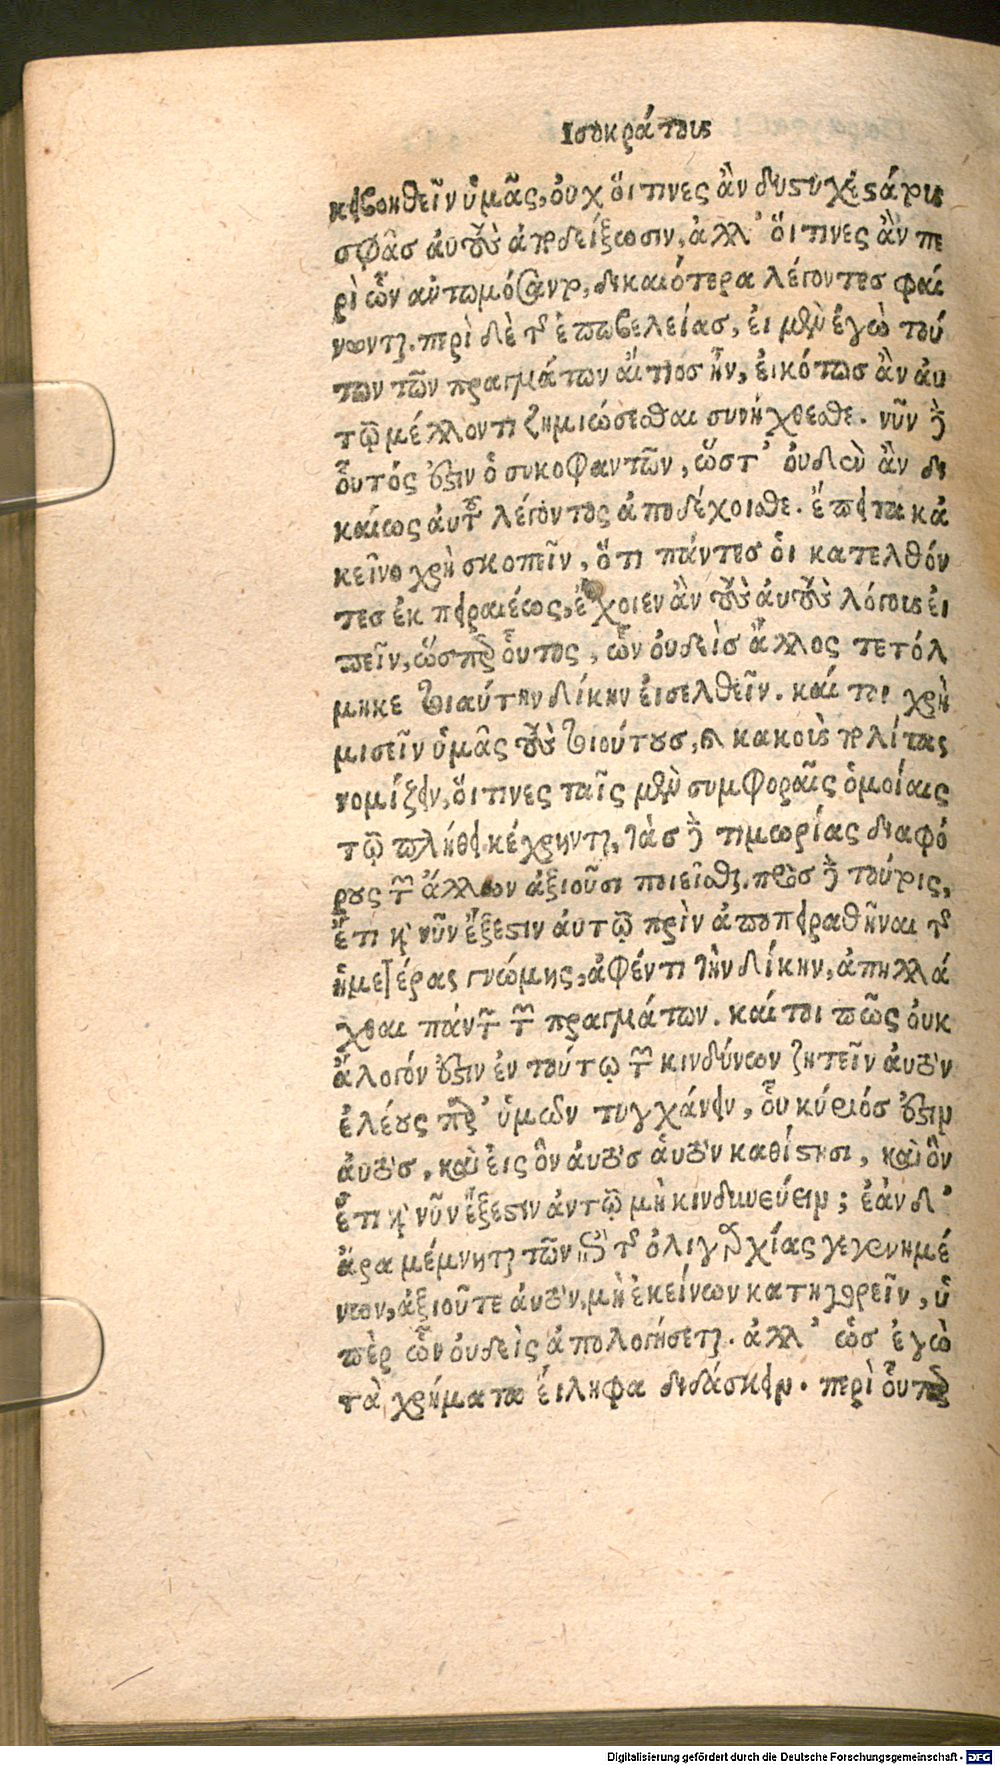 Ισοκράτους
κ βοηθεῖν ὑμᾶς, οὐχ ὅιτινες ἂν δυστυχεστάτους
σφᾶσ ἀυτοὺς ἀποδείξωσιν, ἀλλ' ὅιτινες ἂν πε
ρὶ ὧν αὐτωμόσαντο, δικαιότερα λέγοντεσ φαί
νωνται. περὶ δὲ τῆς ἐπωβελείας, ἐι μὲν ἐγὼ τού
των τῶν πραγμάτων ἄιτιοσ ἦν, ἐικότωσ ἂν ἀυ
τῷ μέλλοντι ζημιώσεσθαι συνήχθεσθε. νῦν δ
οὗτός ἐστιν ὁ συκοφαντῶν, ὥστ' ὀυδὲν ἂν δι
καίως ἀυτοῦ λέγοντος ἀποδέχοισθε. ἔπειτα κἀ
κεῖνο χρὴ σκοπεῖν, ὅτι πάντεσ ὁι κατελθόν
τεσ ἐκ πειραιέως, ἔχοιεν ἂν τοὺς ἀυτοὺς λόγους ἐι
πεῖν, ὥσπερ οὗτος, ὧν ὀυδεὶσ ἄλλος τετόλ
μηκε τοιαύτην δίκην ἐισελθεῖν. καίτοι χρὴ
μισεῖν ὑμᾶς τοὺς τοιούτουσ, καὶ κακοὺς πολίτας
νομίζειν, ὅιτινες ταῖς μὲν συμφοραῖς ὁμοίαις
τῷ πλήθει κέχρηνται, τὰσ δὲ τιμωρίας διαφό
ρους τῶν ἄλλων ἀξιοῦσι ποιεῖσθαι. πρὸσ δὲ τούτοις,
ἔτι καὶ νῦν ἔξεστιν ἀυτῷ πρὶν ἀποπειραθῆναι τῆς
ἡμετέρας γνώμης, ἀφέντι τὴν δίκην, ἀπηλλά
χθαι πάντων τῶν πραγμάτων. καίτοι πῶς ὀυκ
ἄλογόν ἐστιν ἐν τούτῳ τῶν κινδύνων ζητεῖν ἀυτὸν
ἐλέους παρ' ὑμῶν τυγχάνειν, οὗ κύριόσ ἐστιν
ἀυτὸσ, καὶ ἐις ὃν ἀυτὸσ ἁυτὸν καθίστησι, καὶ ὃν
ἔτι καὶ νῦν ἔξεστιν ἀντῷ μὴ κινδυνεύειν; ἐὰν δ'
ἄρα μέμνηται τῶν ἐπὶ τῆς ὀλιγαρχίας γεγενημέ
νων, ἀξιοῦτε ἀυτὸν, μὴ ἐκείνων κατηγορεῖν, ὑ
πὲρ ὧν ὀυδεὶς ἀπολογήσεται. ἀλλ' ὡσ ἐγὼ
τὰ χρήματα ἔιληφα διδάσκειν. περὶ οὗπερ